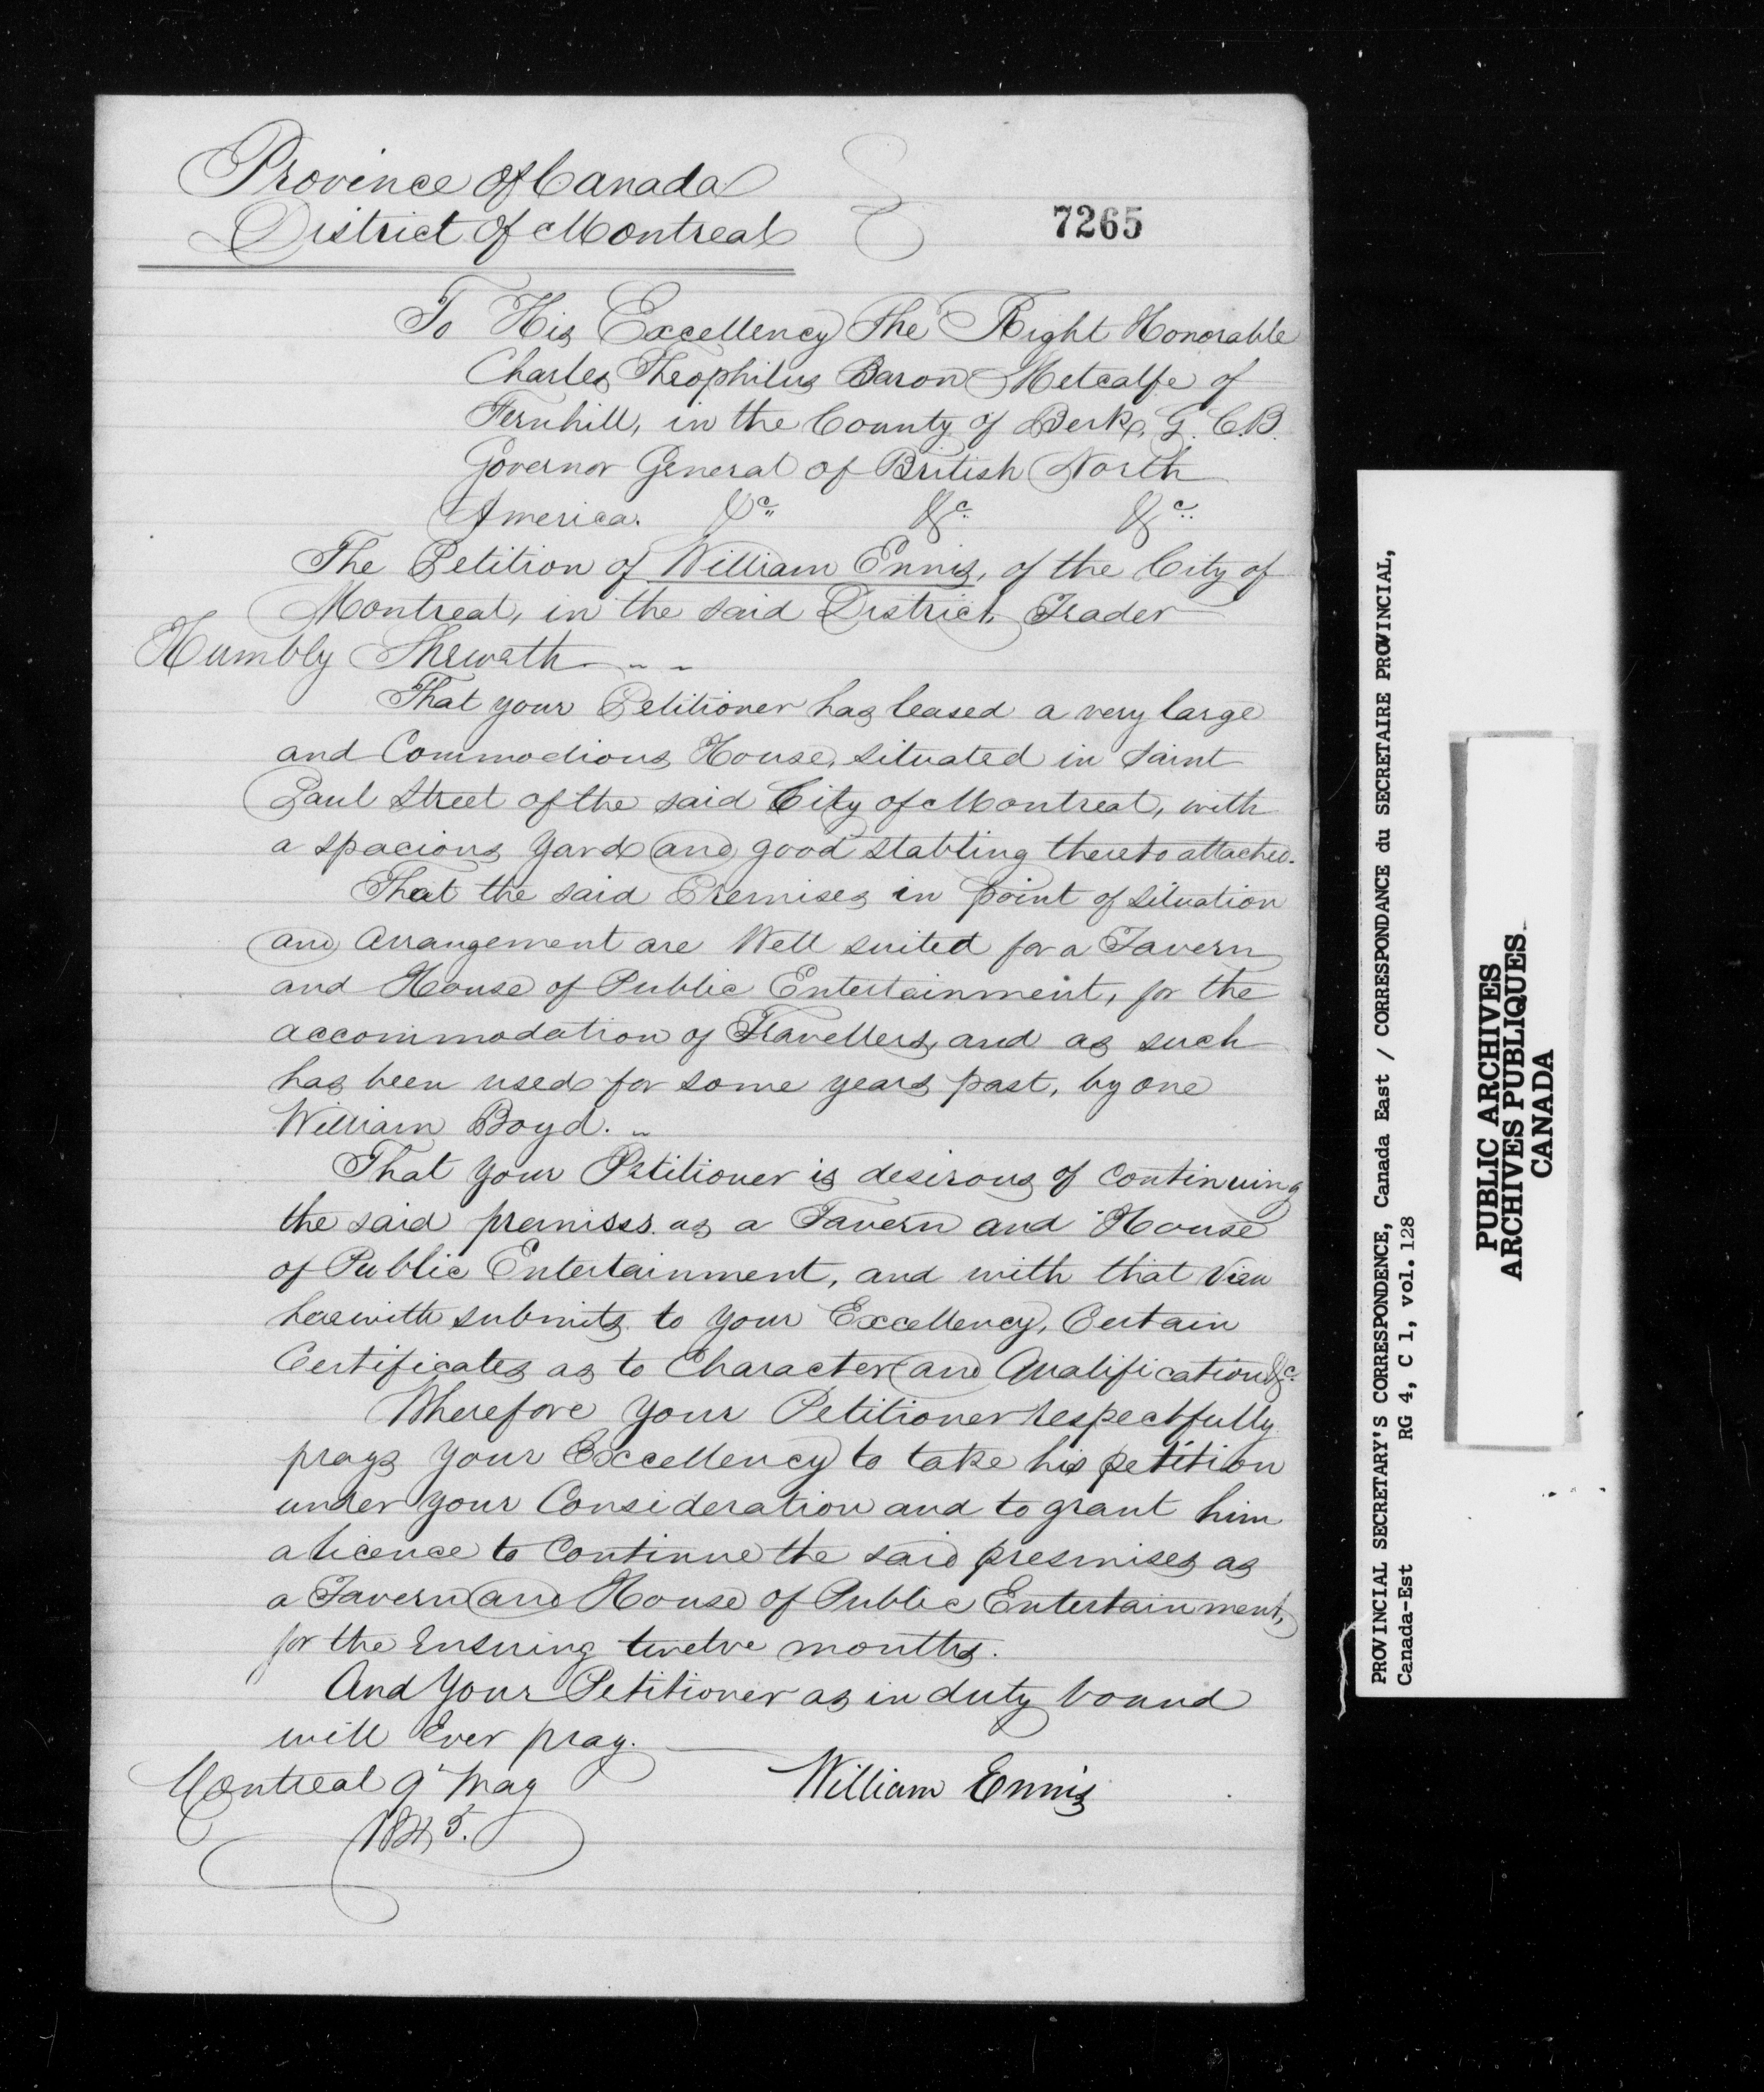 Province of Canada
District of Montreal
7265
To His Excellency The Right Honorable
Charles Theophilus Baron Metcalfe of
Fernhill, in the County of Berks, G. C.B.
Governor General of British North
America. &c. &c. &c.
The Petition of William Ennis, of the City of
Montreal, in the said District, Trader
Humbly Sheweth
That your Petitioner has leased a very large
and Commodious House, situated in Saint
Paul Street of the said City of Montreal, with
a spacious yard and good stabling thereto attached.
That the said Premises in point of situation
and Arrangement are Well suited for a Tavern
and House of Public Entertainment, for the
accommodation of Travellers, and as such
has been used for some years past, by one
William Boyd.
That your Petitioner is desirous of Continuing
the said premises as a Tavern and House
of Public Entertainment, and with that View
herewith submits to your Excellency, Certain
Certificates as to Character and Qualification &c.
Wherefore your Petitioner respectfully
prays your Excellency to take his petition
under your Consideration and to grant him
a licence to Continue the said premises as
a Tavern and House of Public Entertainment,
for the Ensuing twelve months.
And Your Petitioner as in duty bound
will Ever pray.
Montreal 9 May
1845.
William Ennis
PROVINCIAL SECRETARY'S CORRESPONDENCE, Canada East / CORRESPONDANCE du SECRETAIRE PROVINCIAL,
Canada-Est RG 4, C 1, vol. 128
PUBLIC ARCHIVES
ARCHIVES PUBLIQUES
CANADA